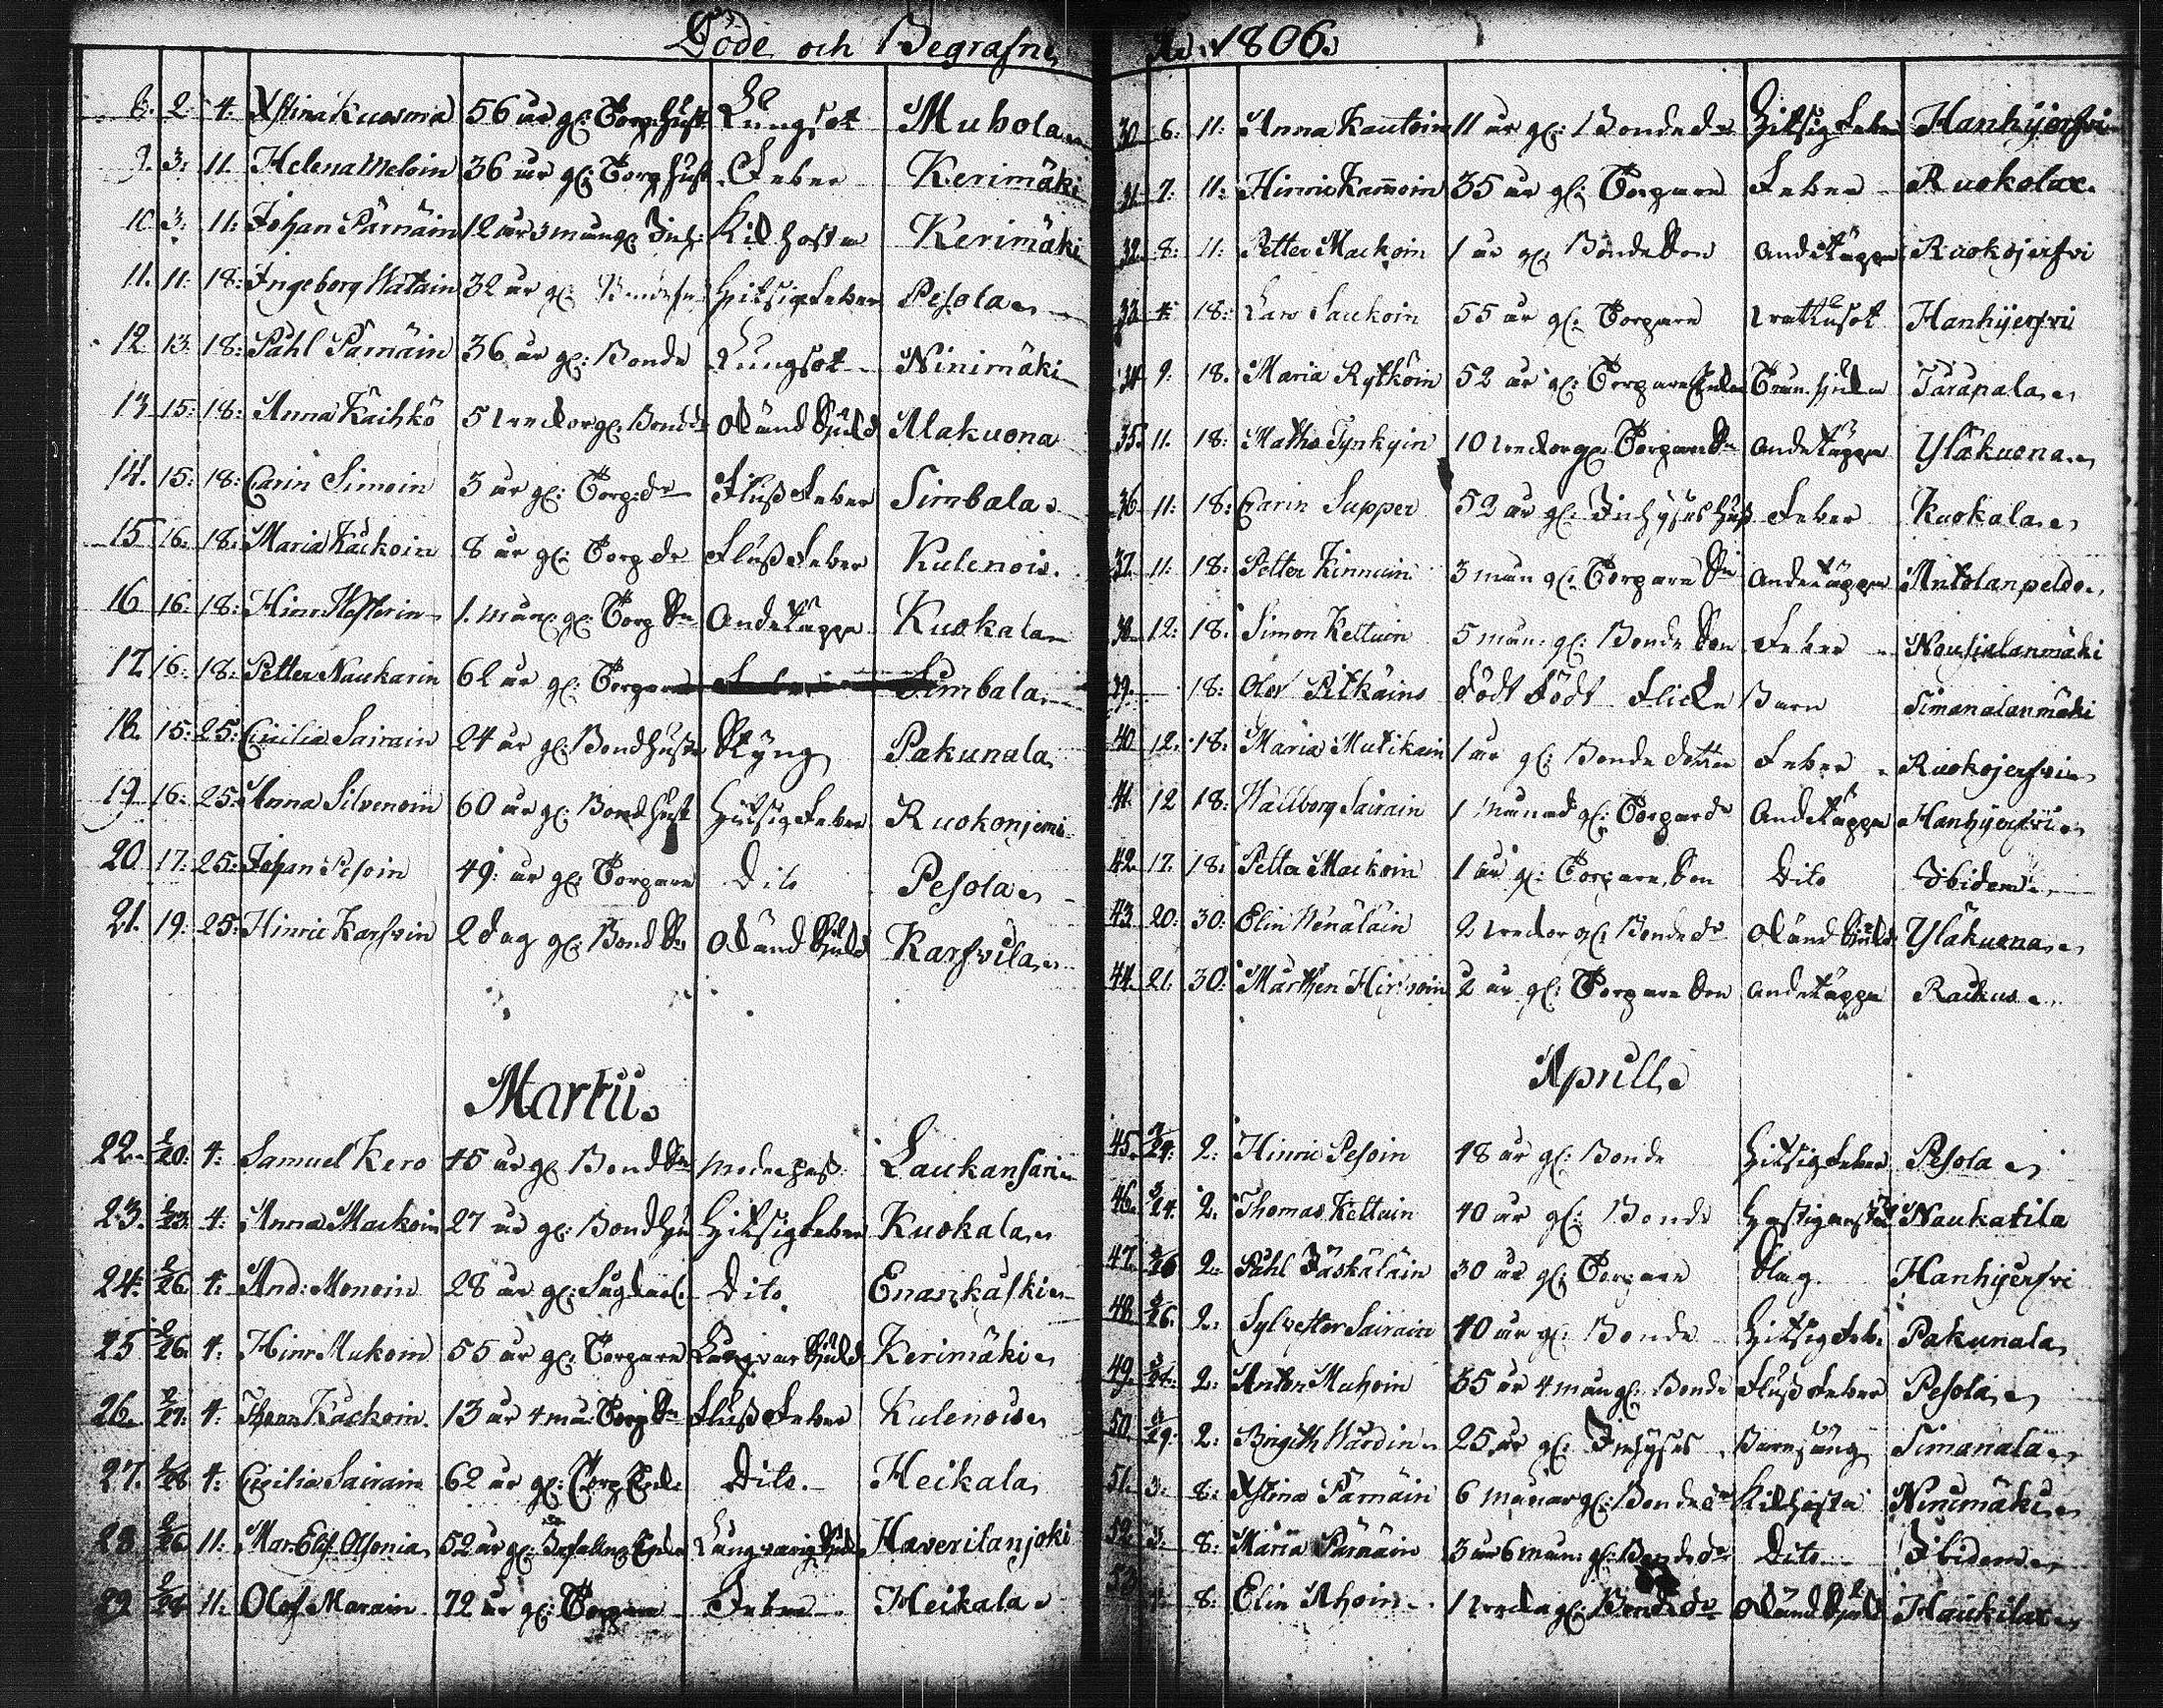 Döde och Begrafne A: 1806.
8. 2. 4. Xstina Kuosma 56 år gl: Torp:hust Lungsot Muhola
9. 3. 11. Helena Meloin 36 år gl: Torp hust Feber Kerimäki
10. 3. 11: Johan Pärnäin 12 år 3 mån gl: Inh: Kikhosta Kerimäki
11. 11. 18: Ingeborg Watain 32 år gl: Hitsig Feber Pesola
12 13. 18: Påhl Pärnäin 36 år gl: Bonde Lungsot Ninimäki
13 15: 18: Anna Käihkö 5 veckor gl: Bond dr Okänd Sjukd Alakuona
14. 15: 18: Carin Simoin 3 år gl: Torp: dr Fluss Feber Simbala
15 16. 18: Maria Käckoin 8 år gl: Torp dr Fluss Feber Kulenois.
16 16: 18: Hinr: 1. mån gl: Torp Sn Andtäppa Kuokala
17. 16: 18: Petter Naukarin 62 år gl: Torpare Simbala
18. 15: 25: Cicilia Sairain 24 år gl: Bond hustr Styng Pakunala
19 16: 25: Anna Silvenoin 60 år gl: Bond hust Hitsig Feber Ruokoniemi
20 17: 25: Johan Pesoin 49: år gl: Torpare Dito Pesola
21. 19: 25: Hinric Karfvin 2 dag gl: Bond Sn Okänd Sjukd Karfvila
Martii.
22. 2/20: 4: Samuel Kero 45 år gl: Bond Sn Laukansari
23. 2/23: 4: Anna Mackoin 27 år gl: Bond hu Hitsig Feber Kuokala
24. 2/26 4: And: Monoin 28 år gl: Dito Enankåski
25 2/26. 4: Hinr Mukoin 55 år gl: Torpare Långvar Sjukd Kerimäki
26. 2/27: 4: Käckoin. 13 år 4 mån Torp Sn Fluss Feber Kulenois
27. 2/28 4: Cicilia Sairain 62 år gl: Torp Enka Dito. Heikala
28 2/26. 11: Mar Elis. 52 år gl: Enka Långvarig Sjukd Haverilanjoki
29 2/28 11: Olof Marain 72 år gl: Torpare Feber Heikala
30 6: 11: Anna Kautoin 11 år gl: Bonde dr Hitsig Feber Hanhijerfvi
31 7: 11: Hinric Kamoin 35 år gl: Torpare Feber Ruokolax.
32. 8: 11: Petter Mackoin 1 år gl: Bonde Son Andtäppa Ruokojerfvi
33. 4: 18: Lars Laukoin 55 år gl: Torpare Hanhijerfvi
34. 9: 18. Maria Rytköin 52 år gl: Torpare Enka Tarapala
35. 11. 18: Maths Tynkyin 10 veckor gl: Torpare Sn Andtäppa Yläkuona
36 11: 18: Carin Supper 52 år gl: Inhyses hust Feber Kuokala
37. 11: 18: Petter Kinnuin 3 mån gl: Torpare Sn Andtäppa Antolanpeldo
38. 12: 18. Simon Keltuin 5 mån: gl: Bonde Son Feber Nousialanmäki
39. 18: Olof Pitkäins dödt född Flicke Barn Simanalanmäki
40 12. 18: Maria Mutikain 1 år gl: Bonde dotter Feber Ruokojerfvi
41. 12 18: Wallborg Sairain 1 månad gl: Torpar dr Andtäppa Hanhijerfvi
42. 17. 18: Petter Mackoin 1 år gl: Torpare Son Dito Ibidem
43. 20: 30: Elin Wenäläin 2 veckor gl: Bonde dr Okänd Sjukd Yläkuona
44. 21. 30: Mårthen Hirvoin 2 år gl: Torpare Son Andtäppa Raikus
Aprill.
45. 3/24: 2: Hinric Pesoin 48 år gl: Bonde Hitsig Feber Pesola
46. 3/24. 2. Thomas Keltuin 40 år gl: Bonde Naukatila
47. 3/26 2: Påhl Jäskäläin 30 år gl: Torpare Slag. Hanhijerfvi
48. 3/26. 2: Sylvester Sairain 40 år gl: Bonde Hitsig Feb. Pakunala
49. 2: Anton Muhoin 35 år 4 mån gl: Bonde Fluss Feber Pesola
50. 3/29: 2: Brigith Wärdin 25 år gl: Inhyses Barnsäng Simanala
51. 3. 8. Xstina Pärnäin 6 månar gl: Bonde dr Kikhosta Ninimäki
52. 3. 8: Maria Pärnäin 3 år 6 mån: gl: Bonde dr Dito Ibidem
53 8: Elin Ahoin 1 vecka gl: Bonde dr Okänd Sjukd Haukilax